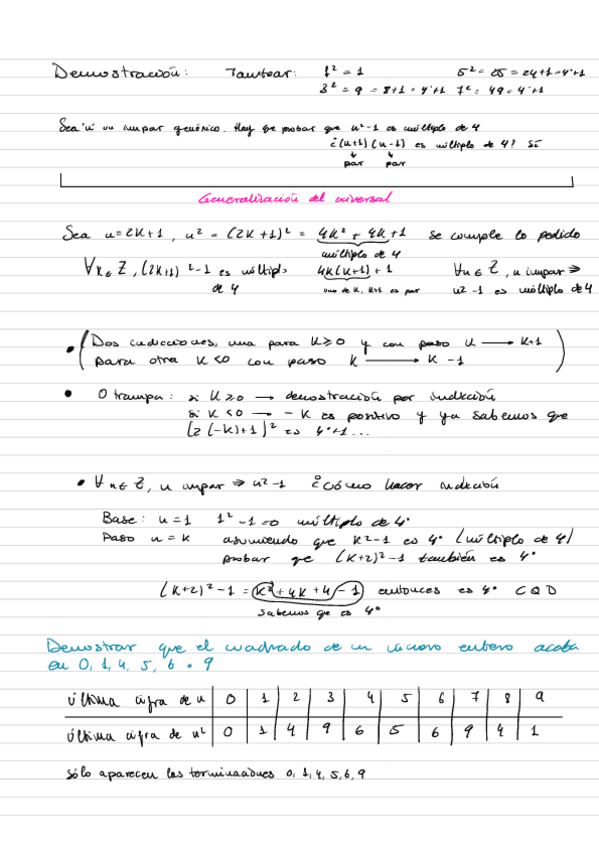 Demostración: Tantear: 1² = 1 5² = 25 = 24+1 = 4°+1
3² = 9 = 8+1 = 4°+1 7² = 49 = 4°+1
Sea "n" un impar genérico. Hay que probar que n²-1 es múltiplo de 4
¿(n+1)(n-1) es múltiplo de 4? Sí
par par
Generalización del universal
Sea n=2K+1, n² = (2K+1)² = 4K² + 4K+1 se cumple lo pedido
múltiplo de 4
∀K∈Z, (2K+1)²-1 es múltiplo 4K(K+1)+1 ∀n∈Z, n impar ⇒
de 4 uno de K, K+1 es par n²-1 es múltiplo de 4
• (Dos inducciones, una para K≥0 y con paso K → K+1
para otra K<0 con paso K → K-1)
• O trampa: si K≥0 → demostración por inducción
si K<0 → -K es positivo y ya sabemos que
(2(-K)+1)² es 4°+1...
• ∀n∈Z, n impar ⇒ n²-1 ¿Cómo hacer inducción
Base: n=1 1²-1=0 múltiplo de 4°
Paso n=K asumiendo que K²-1 es 4° (múltiplo de 4)
probar que (K+2)²-1 también es 4°
(K+2)²-1 = K²+4K+4-1 entonces es 4° CQD
sabemos que es 4°
Demostrar que el cuadrado de un número entero acaba
en 0, 1, 4, 5, 6 o 9
última cifra de n 0 1 2 3 4 5 6 7 8 9
última cifra de n² 0 1 4 9 6 5 6 9 4 1
sólo aparecen las terminaciones 0, 1, 4, 5, 6, 9